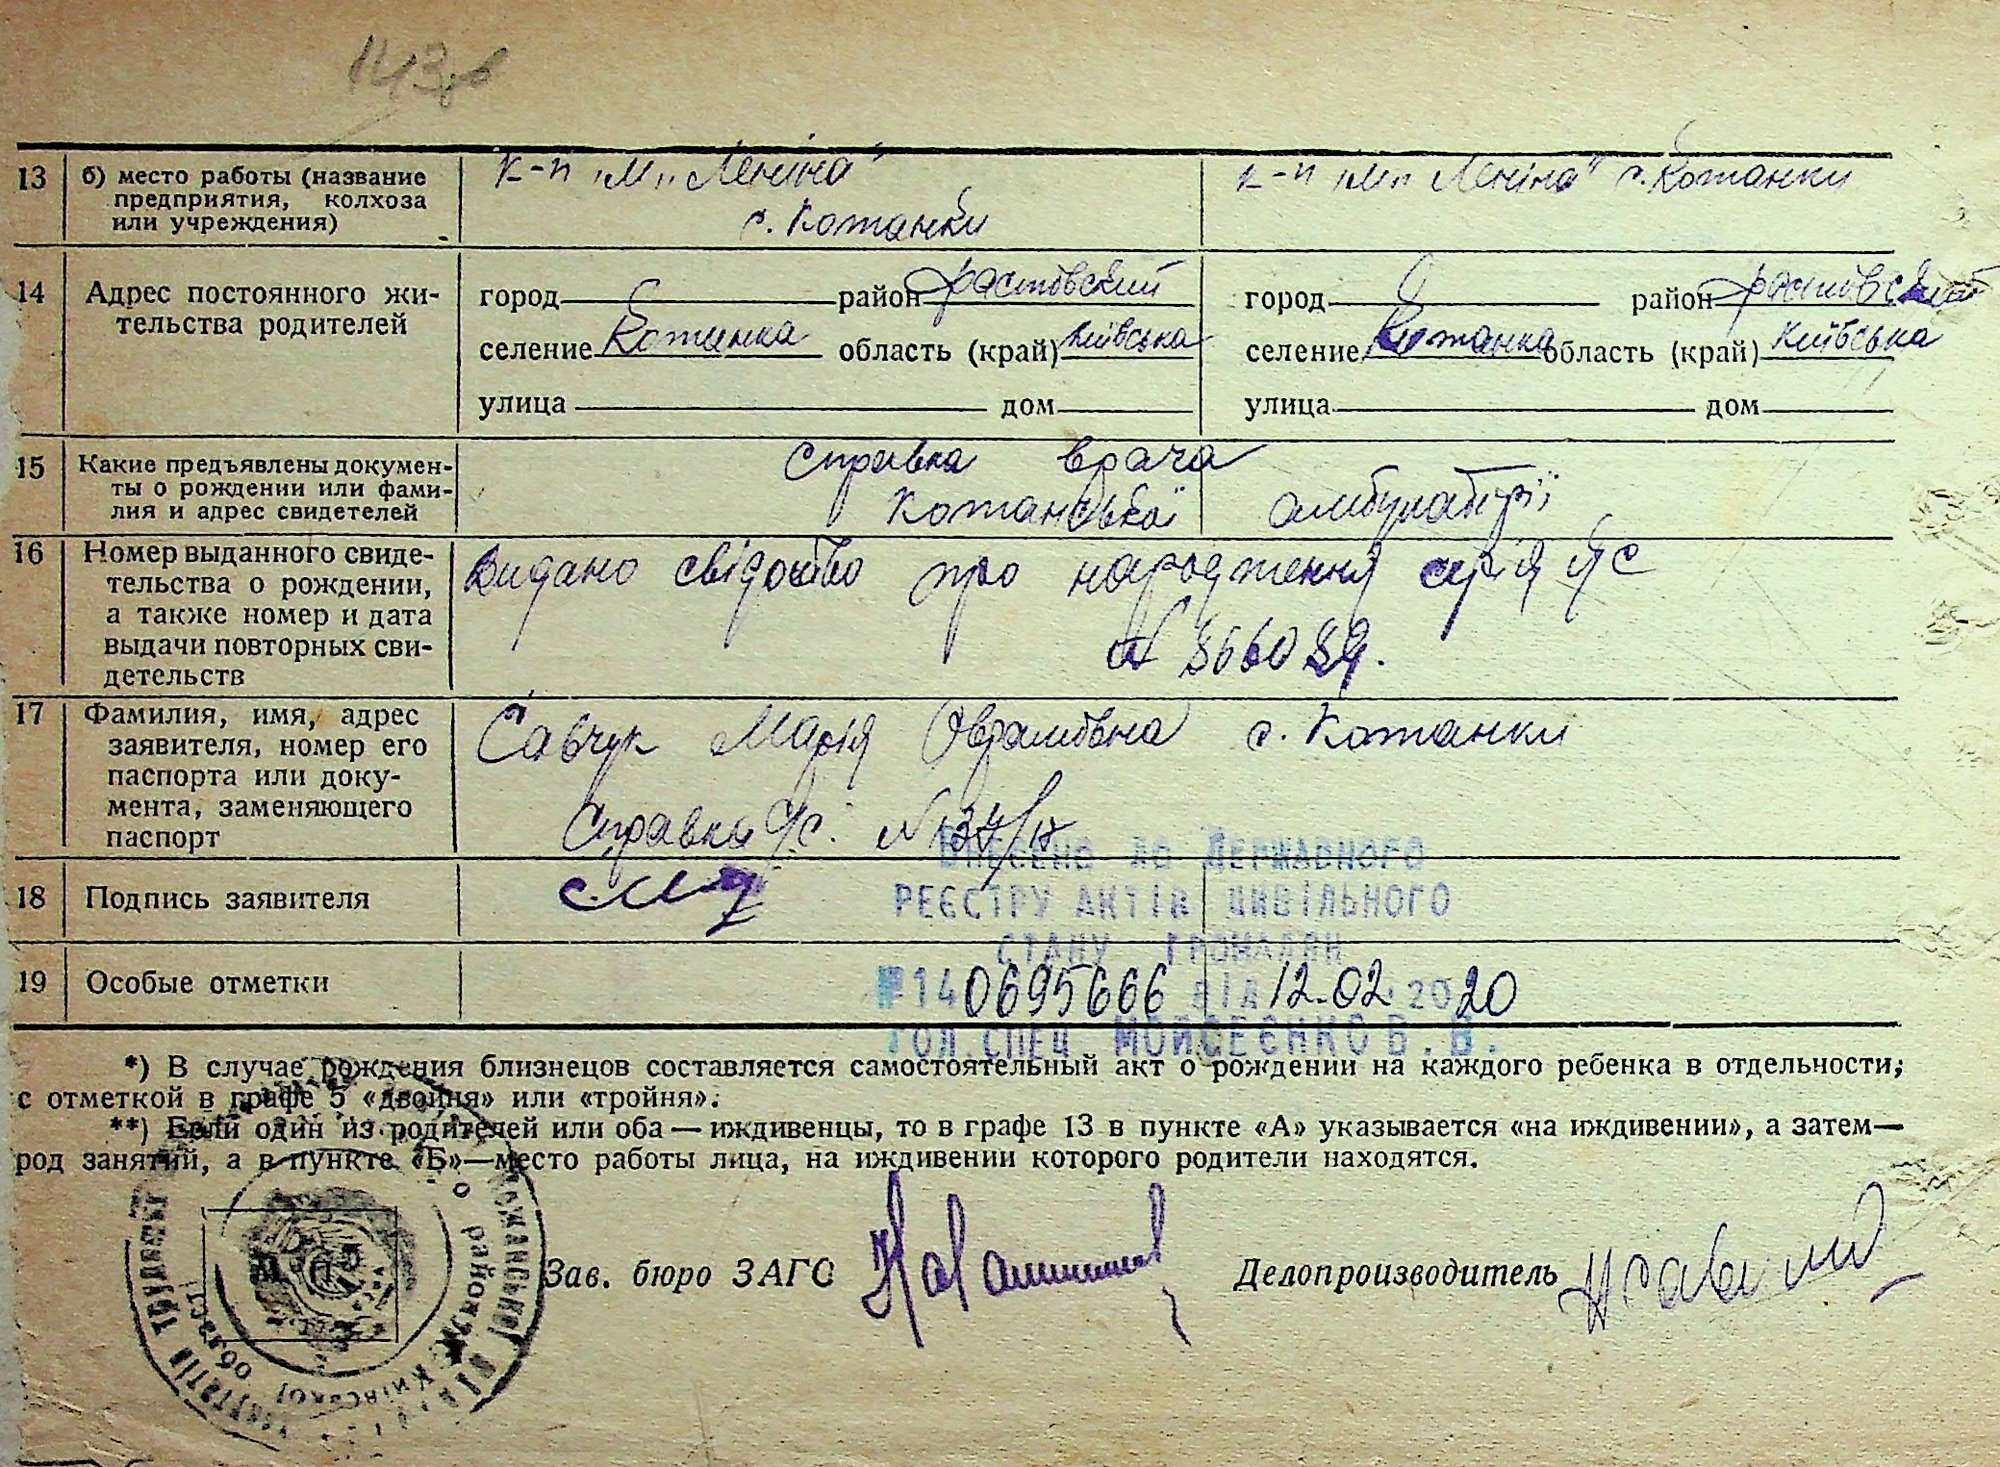 143
13 б) место работы (название предприятия, колхоза или учреждения) к-п „ім. Леніна" с. Кожанки к-п „ім. Леніна" с. Кожанки
14 Адрес постоянного жительства родителей
город район Фастовский
селение Кожанка область (край) Київська
улица дом
город район Фастовский
селение Кожанка область (край) Київська
улица дом
15 Какие предъявлены документы о рождении или фамилия и адрес свидетелей
справка врача
Кожанської амбулаторії
16 Номер выданного свидетельства о рождении, а также номер и дата выдачи повторных свидетельств
Видано свідоцтво про народження серія ЯС
17 Фамилия, имя, адрес заявителя, номер его паспорта или документа, заменяющего паспорт
Савчук Марія Аврамівна с. Кожанки
Справка с/с.
18 Подпись заявителя
19 Особые отметки
Внесено до Державного
реєстру актів цивільного
стану громадян
№140695666 від 12.02.2020
Гол.спец Мойсеєнко В.В.
*) В случае рождения близнецов составляется самостоятельный акт о рождении на каждого ребенка в отдельности,
с отметкой в графе 5 «двойня» или «тройня».
**) Если один из родителей или оба — иждивенцы, то в графе 13 в пункте «А» указывается «на иждивении», а затем—
род занятий, а в пункте «Б»—место работы лица, на иждивении которого родители находятся.
Зав. бюро ЗАГС
Делопроизводитель
Київської області